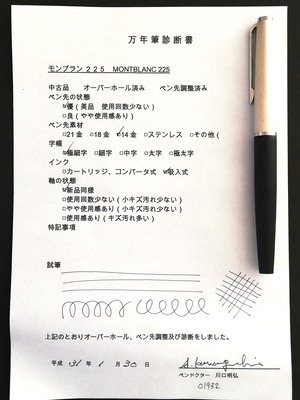 万年筆診断書
モンブラン２２５ MONTBLANC 225
中古品 オーバーホール済み ペン先調整済み
ペン先の状態
☑優（美品 使用回数少ない）
□良（やや使用感あり）
ペン先素材
□21金 □18金 ☑14金 □ステンレス □その他（
字幅
☑極細字 □細字 □中字 □太字 □極太字
インク
□カートリッジ、コンバータ式 ☑吸入式
軸の状態
☑新品同様
□使用回数少ない（小キズ汚れ少ない）
□やや使用感あり（小キズ汚れ少ない）
□使用感あり（キズ汚れ多い）
特記事項
試筆
上記のとおりオーバーホール、ペン先調整及び診断をしました。
平成 31年 1月 30日
ペンドクター 川口明弘
01932